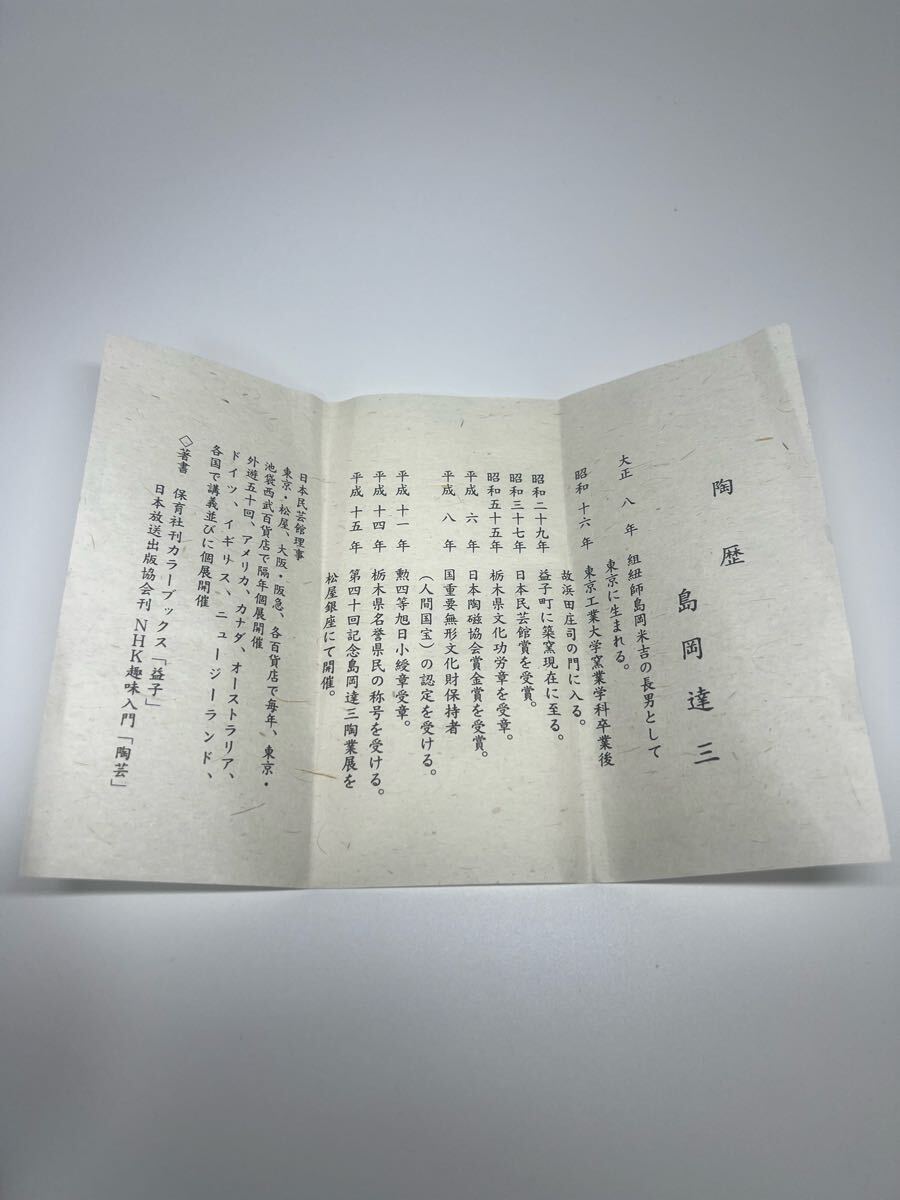 陶歴
島岡達三
大正 八 年 組紐師島岡米吉の長男として
東京に生まれる。
昭和 十六 年 東京工業大学窯業学科卒業後
故浜田庄司の門に入る。
昭和二十九年 益子町に築窯現在に至る。
昭和三十七年 日本民芸館賞を受賞。
昭和五十五年 栃木県文化功労章を受章。
平成 六 年 日本陶磁協会賞金賞を受賞。
平成 八 年 国重要無形文化財保持者
（人間国宝）の認定を受ける。
平成 十一 年 勲四等旭日小綬章受章。
平成 十四 年 栃木県名誉県民の称号を受ける。
平成 十五 年 第四十回記念島岡達三陶業展を
松屋銀座にて開催。
日本民芸館理事
東京・松屋、大阪・阪急、各百貨店で毎年、東京・
池袋西武百貨店で隔年個展開催
外遊五十回、アメリカ、カナダ、オーストラリア、
ドイツ、イギリス、ニュージーランド、
各国で講義並びに個展開催
◇著書 保育社刊カラーブックス「益子」
日本放送出版協会刊 NHK趣味入門「陶芸」